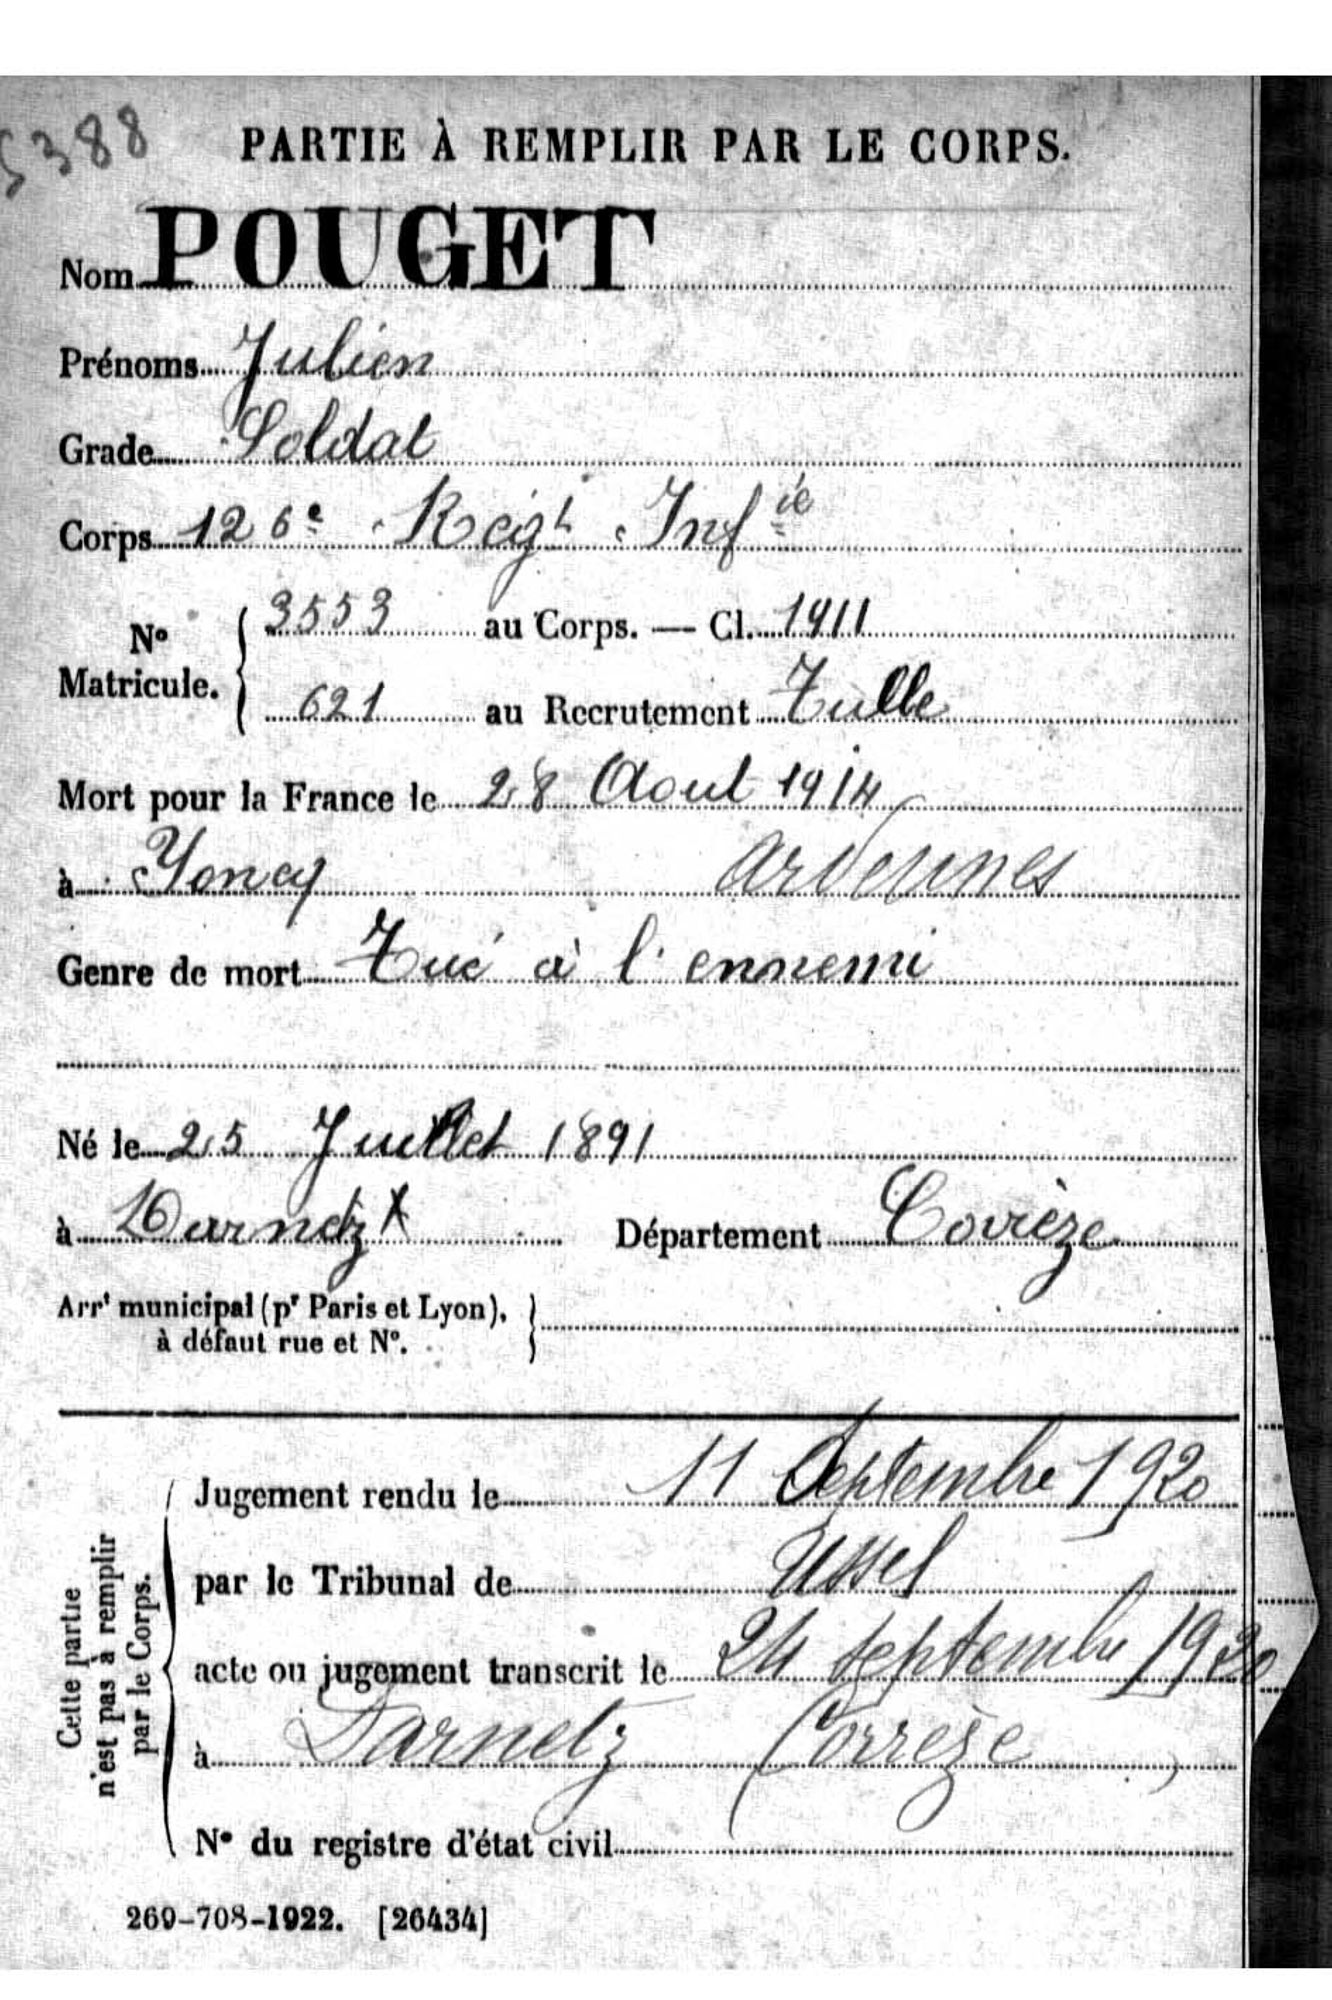 5388
PARTIE À REMPLIR PAR LE CORPS.
Nom POUGET
Prénoms Julien
Grade Soldat
Corps 126e Regt Infie
No Matricule. { 3553 au Corps. — Cl. 1911
621 au Recrutement Tulle
Mort pour la France le 28 Aout 1914
à Yoncy Ardennes
Genre de mort Tué à l'ennemi
Né le 25 Juillet 1891
à Darnetz Département Corrèze
Arrt municipal (pr Paris et Lyon), à défaut rue et No. }
Cette partie n'est pas à remplir par le Corps.
Jugement rendu le 11 Septembre 1920
par le Tribunal de Ussel
acte ou jugement transcrit le 24 septembre 1920
à Darnetz (Corrèze)
No du registre d'état civil
269-708-1922. [26434]